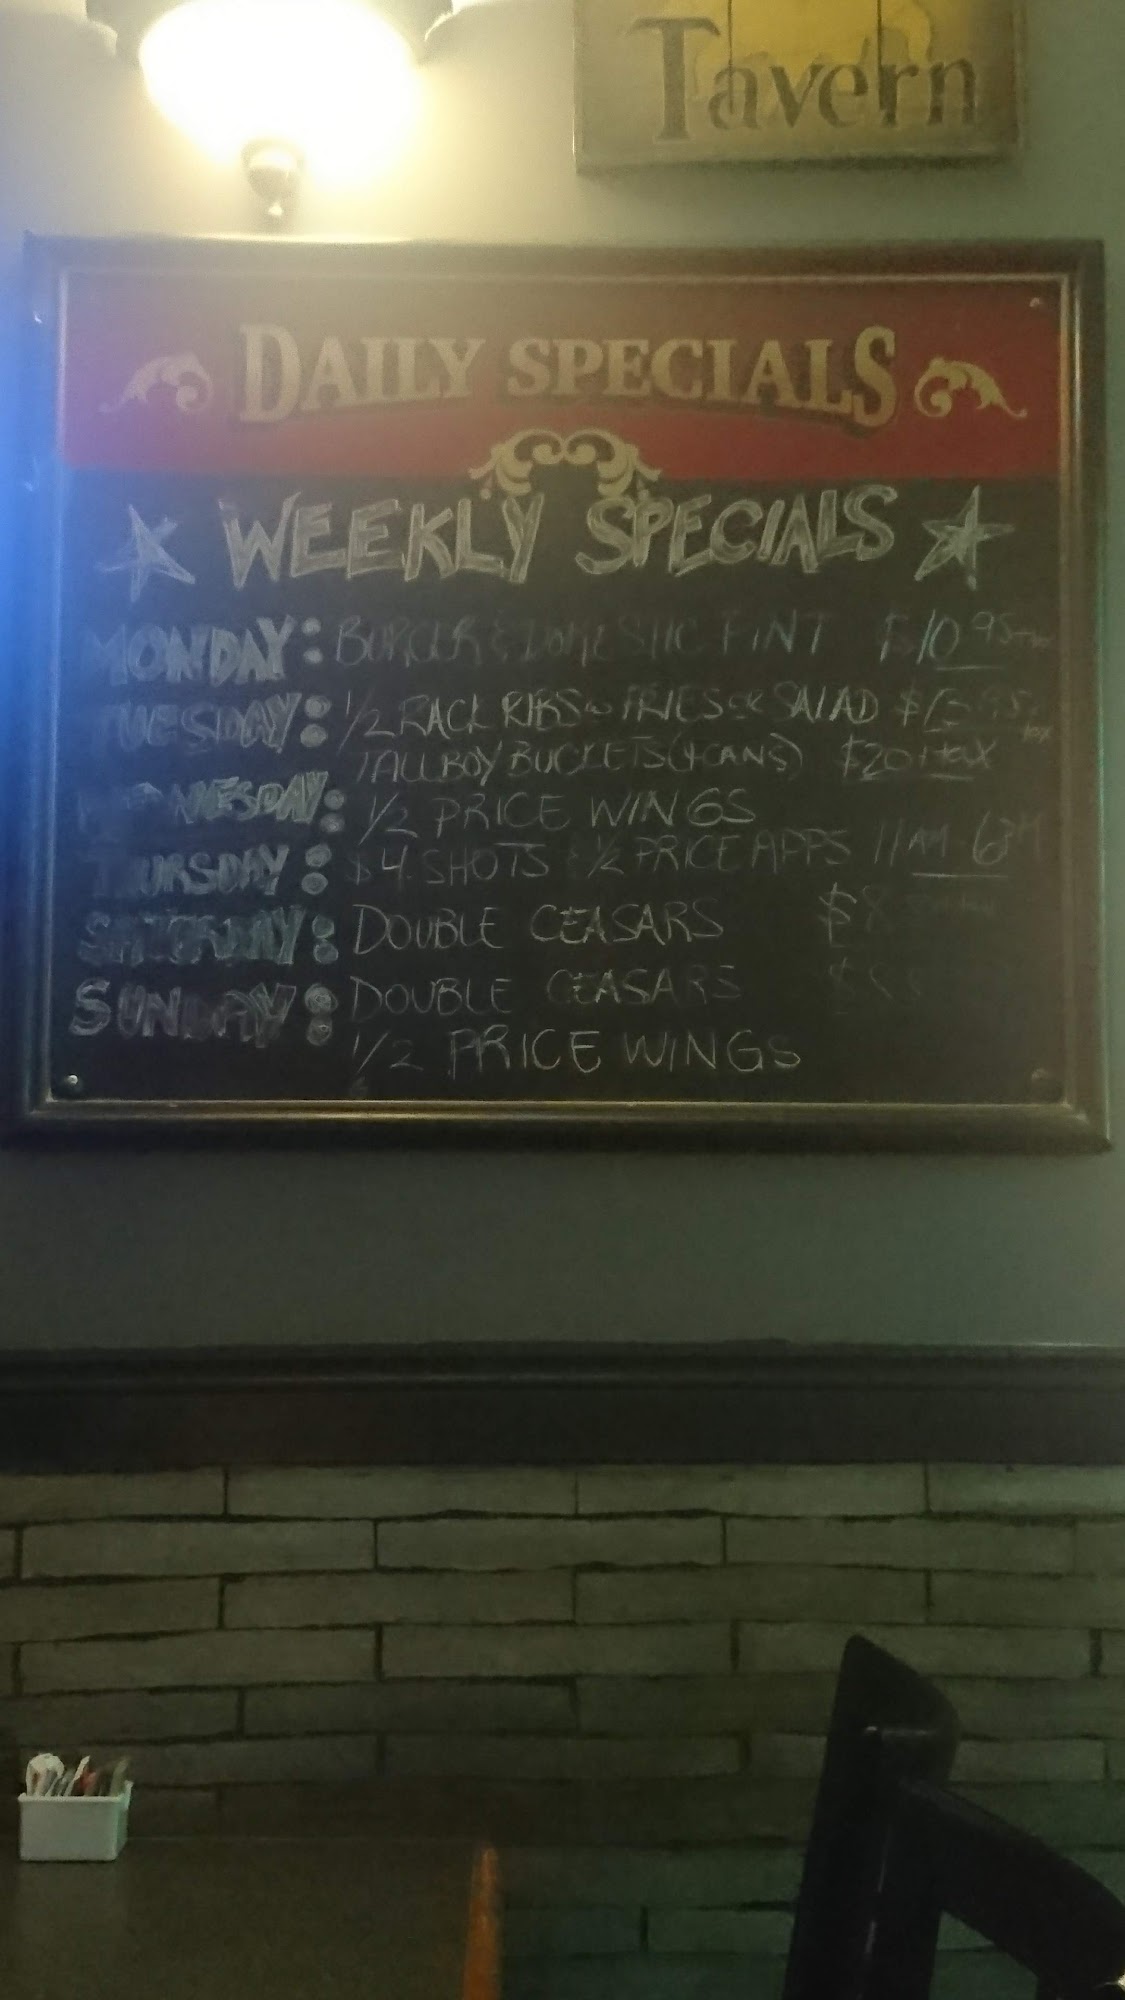 Tavern
DAILY SPECIALS
WEEKLY SPECIALS
MONDAY: BURGER & DOMESTIC PINT $10.95+tax
TUESDAY: 1/2 RACK RIBS w FRIES or SALAD $13.95+tax
TALLBOY BUCKETS (4 CANS) $20+tax
WEDNESDAY: 1/2 PRICE WINGS
THURSDAY: $4 SHOTS & 1/2 PRICE APPS 11AM
SATURDAY: DOUBLE CEASARS $8
SUNDAY: DOUBLE CEASARS $
1/2 PRICE WINGS